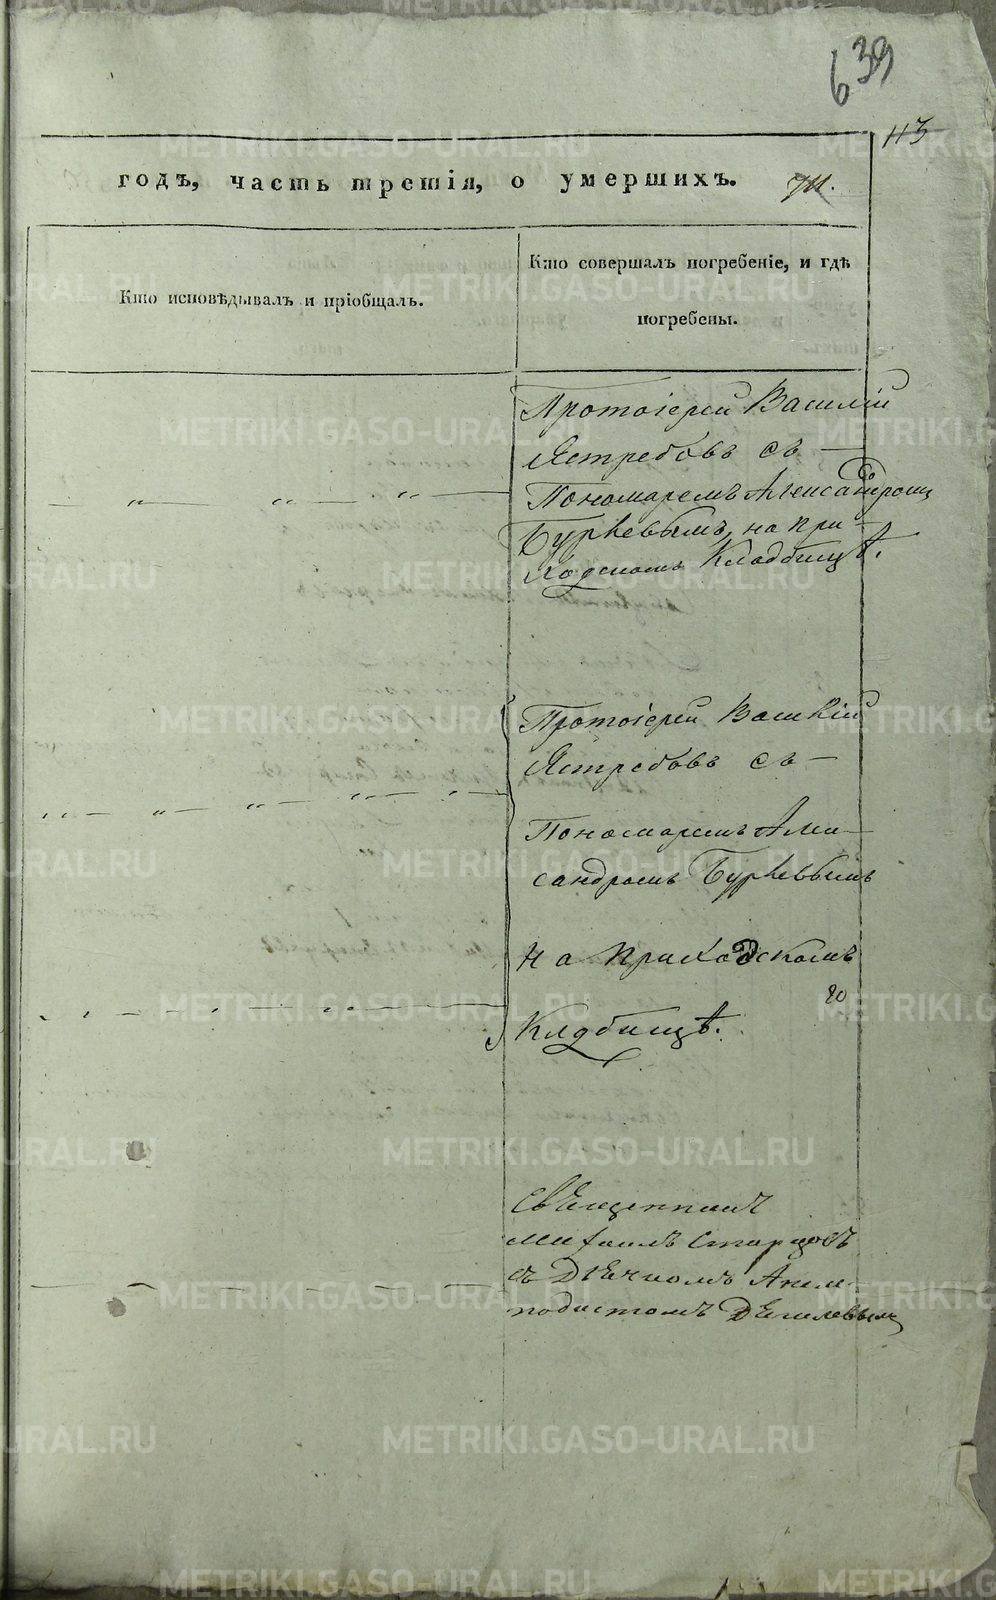 639
113
годъ, часть третія, о умершихъ.
Кто исповѣдывалъ и пріобщалъ.
Кто совершалъ погребеніе, и гдѣ
погребены.
Протоіерей Василій
Ястребовъ съ —
Пономаремъ Александромъ
Буркевымъ, на при-
ходскомъ Кладбищѣ.
Протоіерей Василій
Ястребовъ съ —
Пономаремъ Алек-
сандромъ Буркевымъ
на приходскомъ
Кладбищѣ.
Священникъ
Михаилъ Старцовъ
съ Дьячкомъ Аким
подистомъ
METRIKI.GASO-URAL.RU